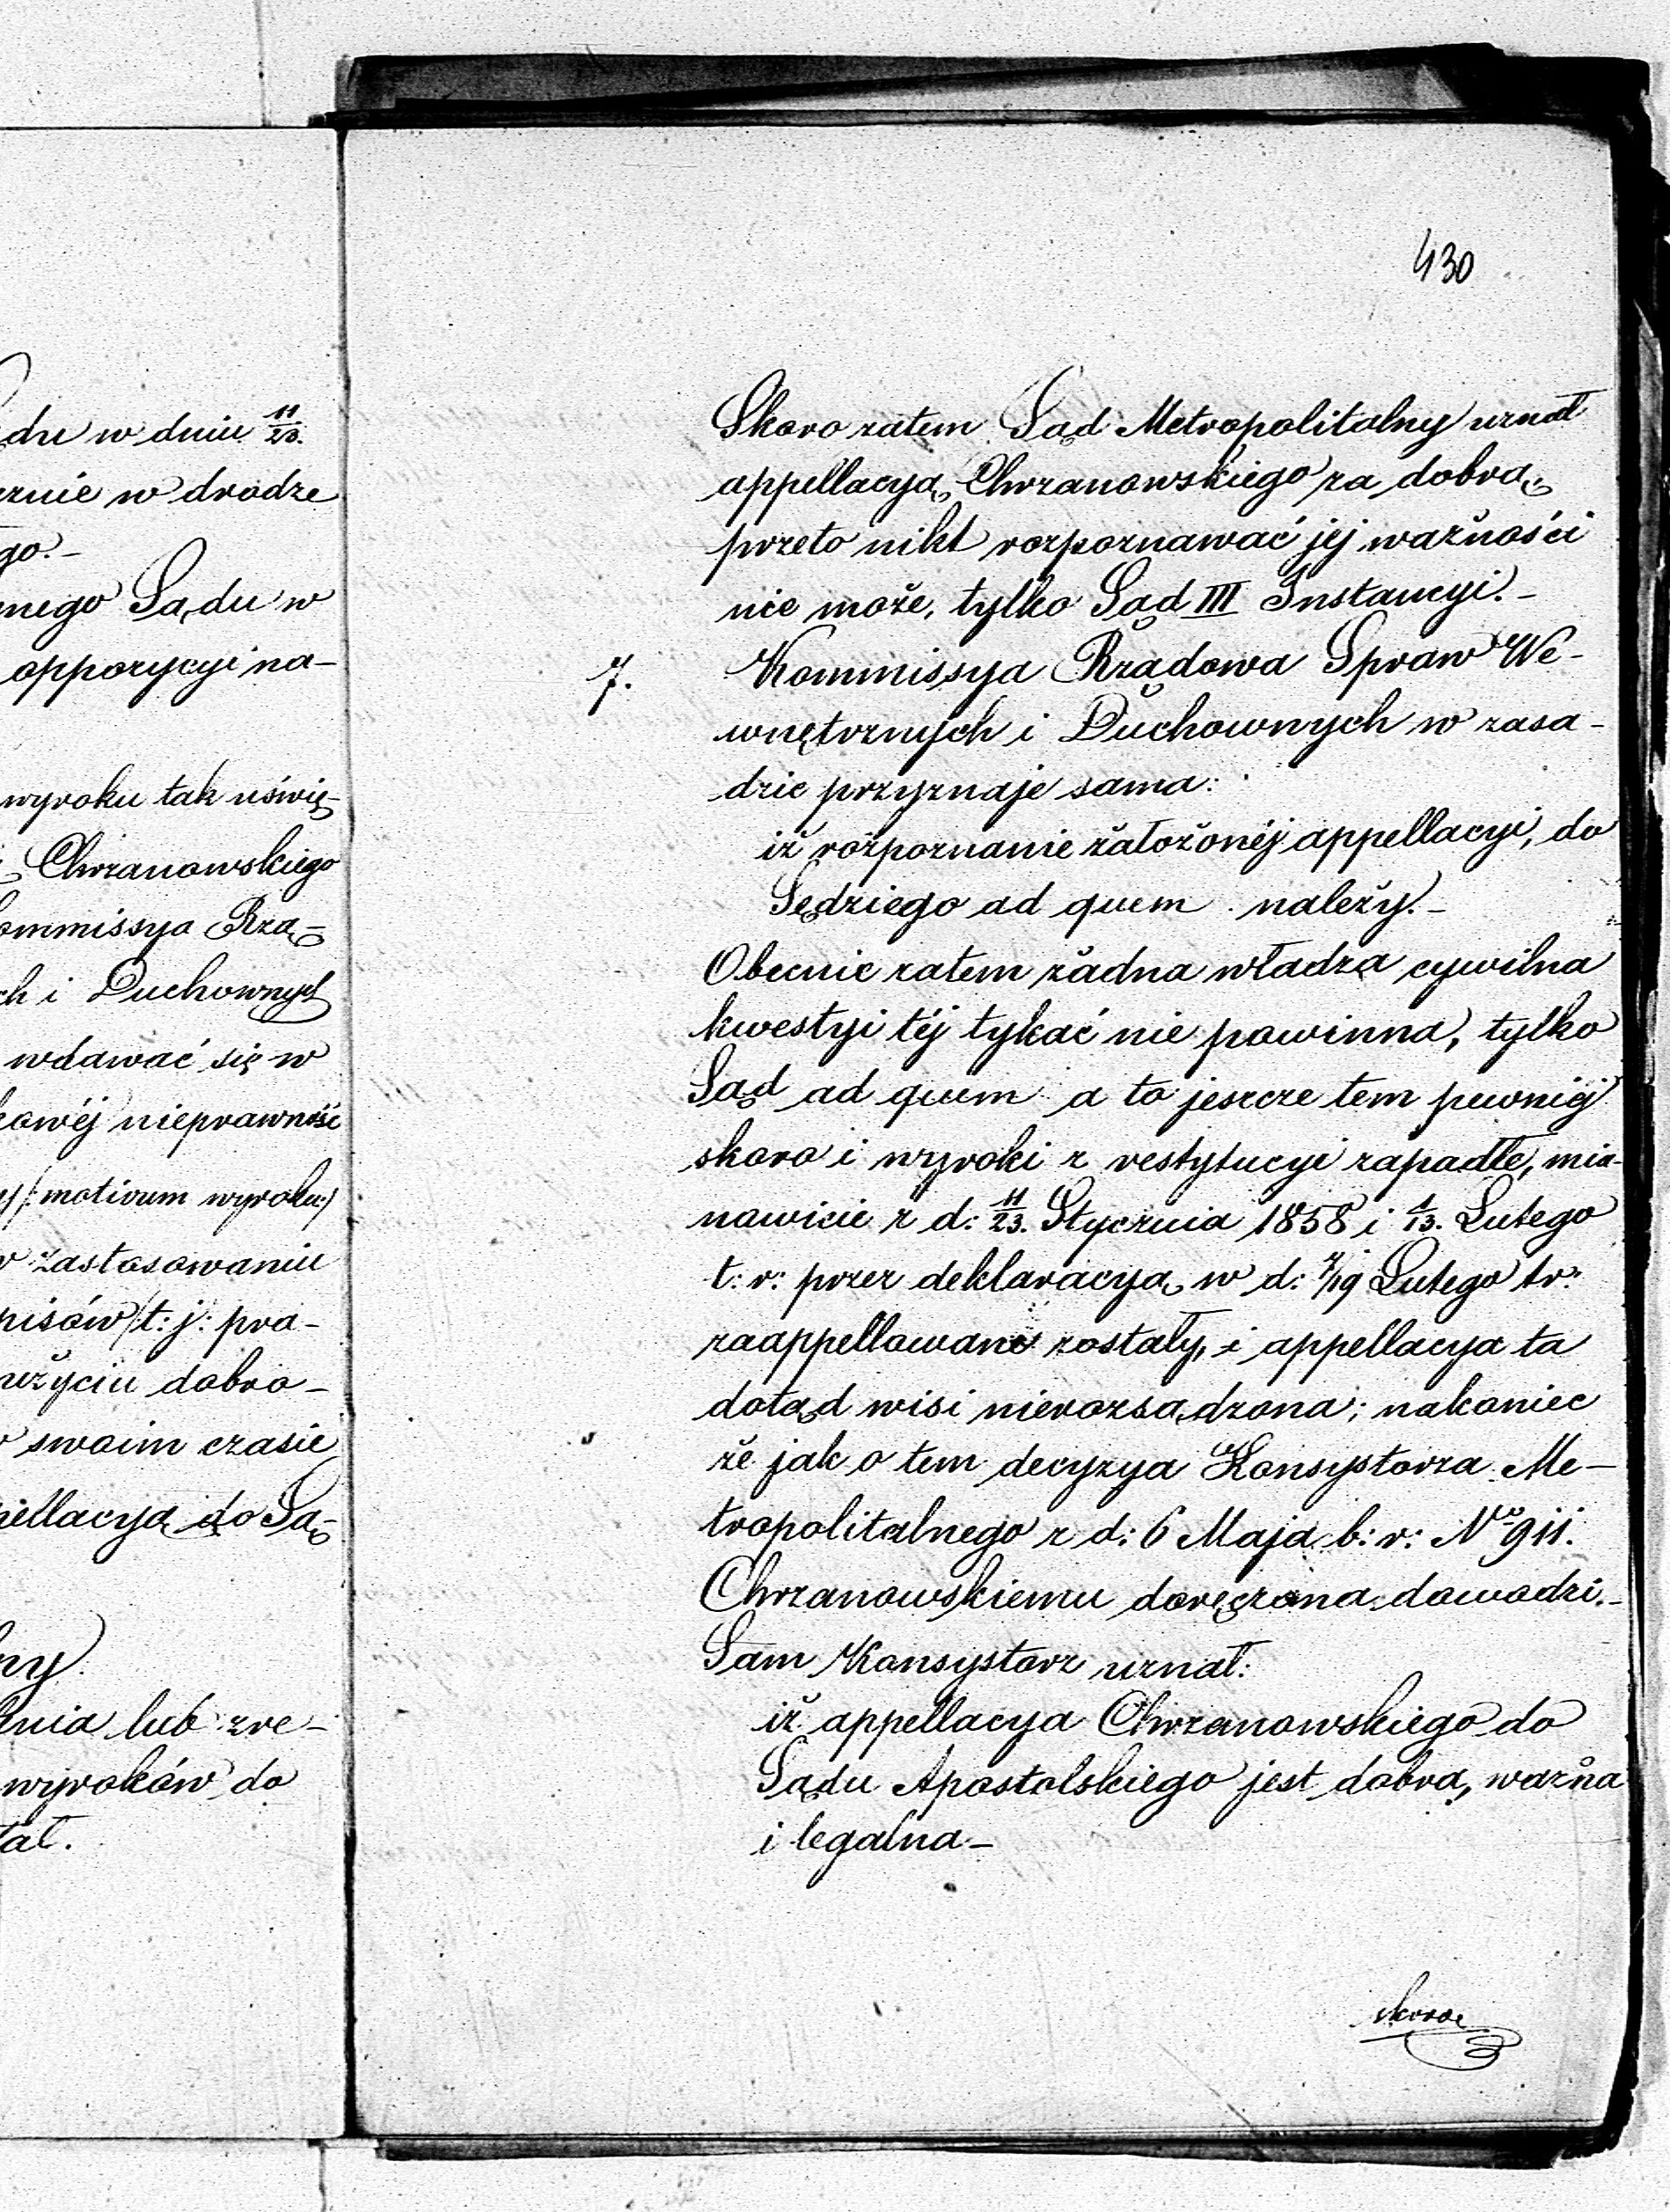 dze w dniu 11/23.
znie w drodze
go.-
nego Sądu w
opporycyi na-
wyroku tak uświę-
Chrzanowskiego
ommissya Rzą-
ch i Duchownych
wdawać się w
kowéj nieprawność
/:motivum wyroku:/
w zastosowaniu
pisów /t: j: pra-
użyciu dobro-
swoim czasie
pellacyą do Są-
ny
enia lub zre-
wyroków do
tał.
430
Skoro zatem Sąd Metropolitalny uznał
appellacyą Chrzanowskiego za dobrą,
przeto nikt rozpoznawać jéj ważności
nie może, tylko Sąd III Instancyi.-
7. Kommissya Rządowa Spraw We-
wnętrznych i Duchownych w zasa-
dzie przyznaje sama:
iż rozpoznanie założonéj appellacyi, do
Sędziego ad quem należy.-
Obecnie zatem żadna władza cywilna
kwestyi téj tykać nie powinna, tylko
Sąd ad quem a to jeszcze tem pewniéj
skoro i wyroki z restytucyi zapadłe, mia-
nowicie z d: 11/23. Stycznia 1858 i 1/13. Lutego
t: r: przez deklaracyą w d: 7/19 Lutego tr:
zaappellowane zostały, i appellacya ta
dotąd wisi nierozsądzona; nakoniec
że jak o tem decyzya Konsystorza Me-
tropolitalnego z d: 6 Maja b: r: No 911.
Chrzanowskiemu doręczona dowodzi.-
Sam Konsystorz uznał:
iż appellacya Chrzanowskiego do
Sądu Apostolskiego jest dobrą, ważna
i legalna-
skoro